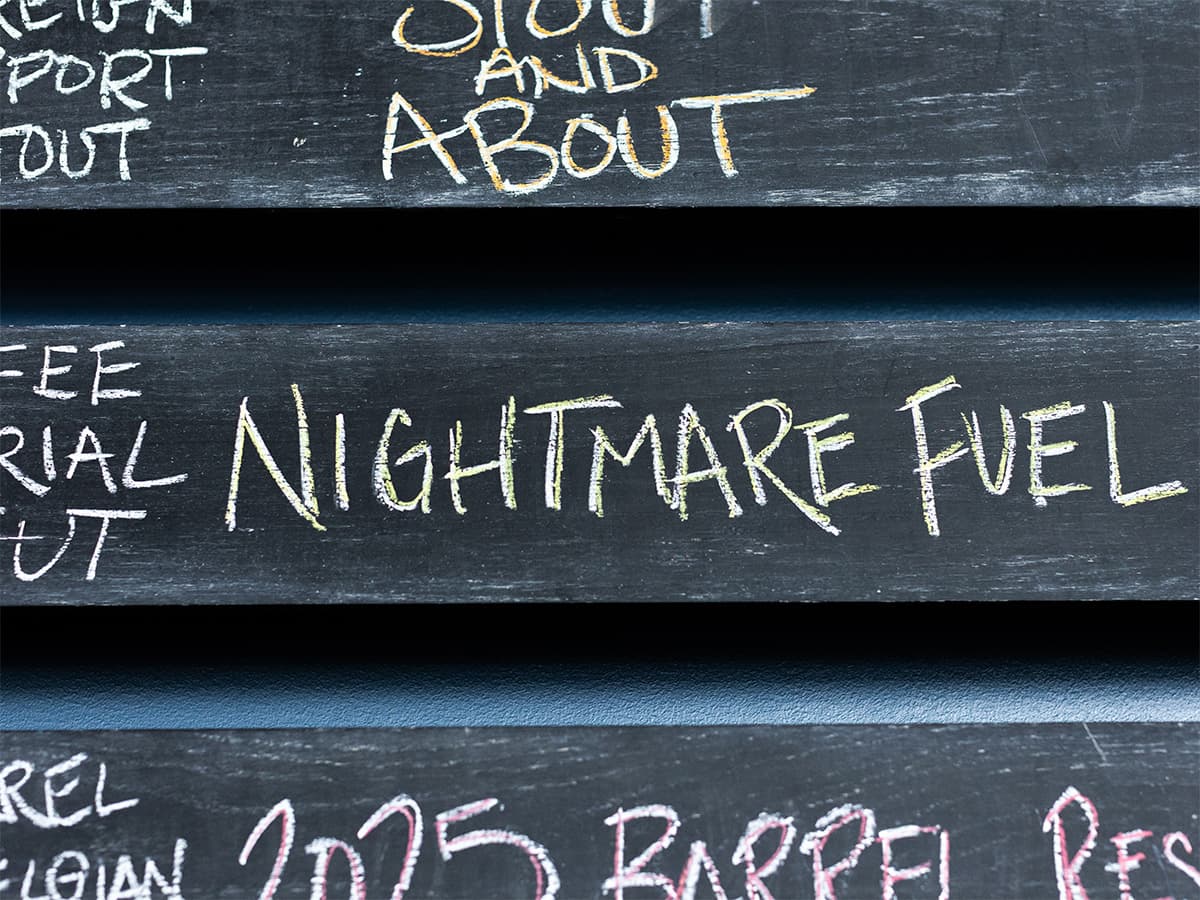 REIGN
PORT
TOUT
STOUT
AND
ABOUT
FEE
RIAL
UT
NIGHTMARE FUEL
REL
ELGIAN
2025 BARREL RES